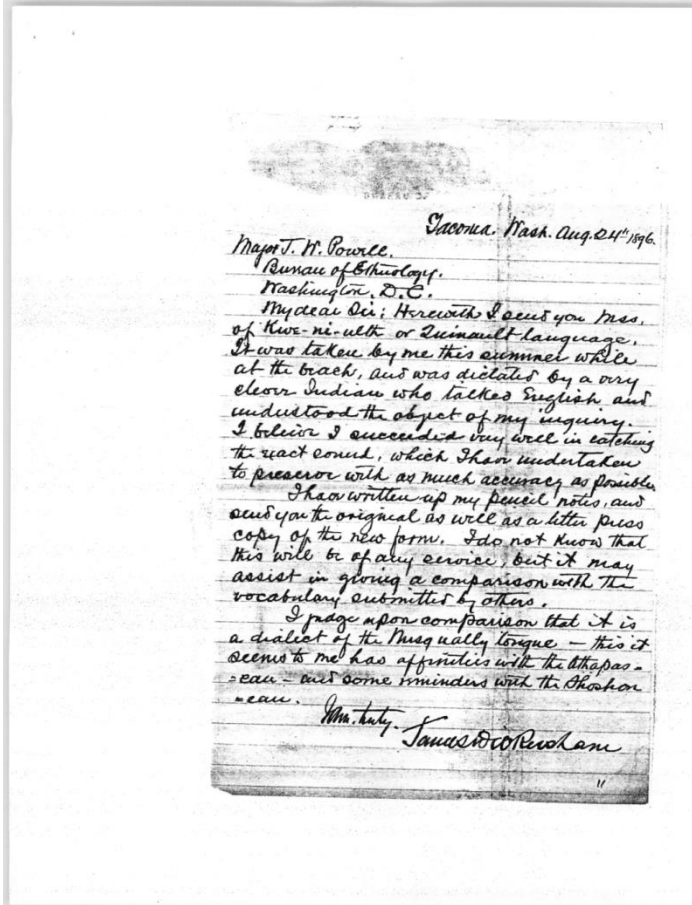 Tacoma. Wash. Aug. 24th 1896.
Major J. W. Powell.
Bureau of Ethnology.
Washington. D.C.
My dear Sir; Herewith I send you Mss.
of Kwe-ni-ulth or Quinault language.
It was taken by me this summer while
at the beach, and was dictated by a very
clever Indian who talked English and
understood the object of my inquiry.
I believe I succeeded very well in catching
the exact sound, which I have undertaken
to preserve with as much accuracy as possible.
I have written up my pencil notes, and
send you the original as well as a letter press
copy of the new form. I do not know that
this will be of any service, but it may
assist in giving a comparison with the
vocabulary submitted by others.
I judge upon comparison that it is
a dialect of the Nusqually tongue — this it
seems to me has affinities with the Athapas-
=can - and some reminders with the Shoshon
=ean.
truly.
James Wickersham
"